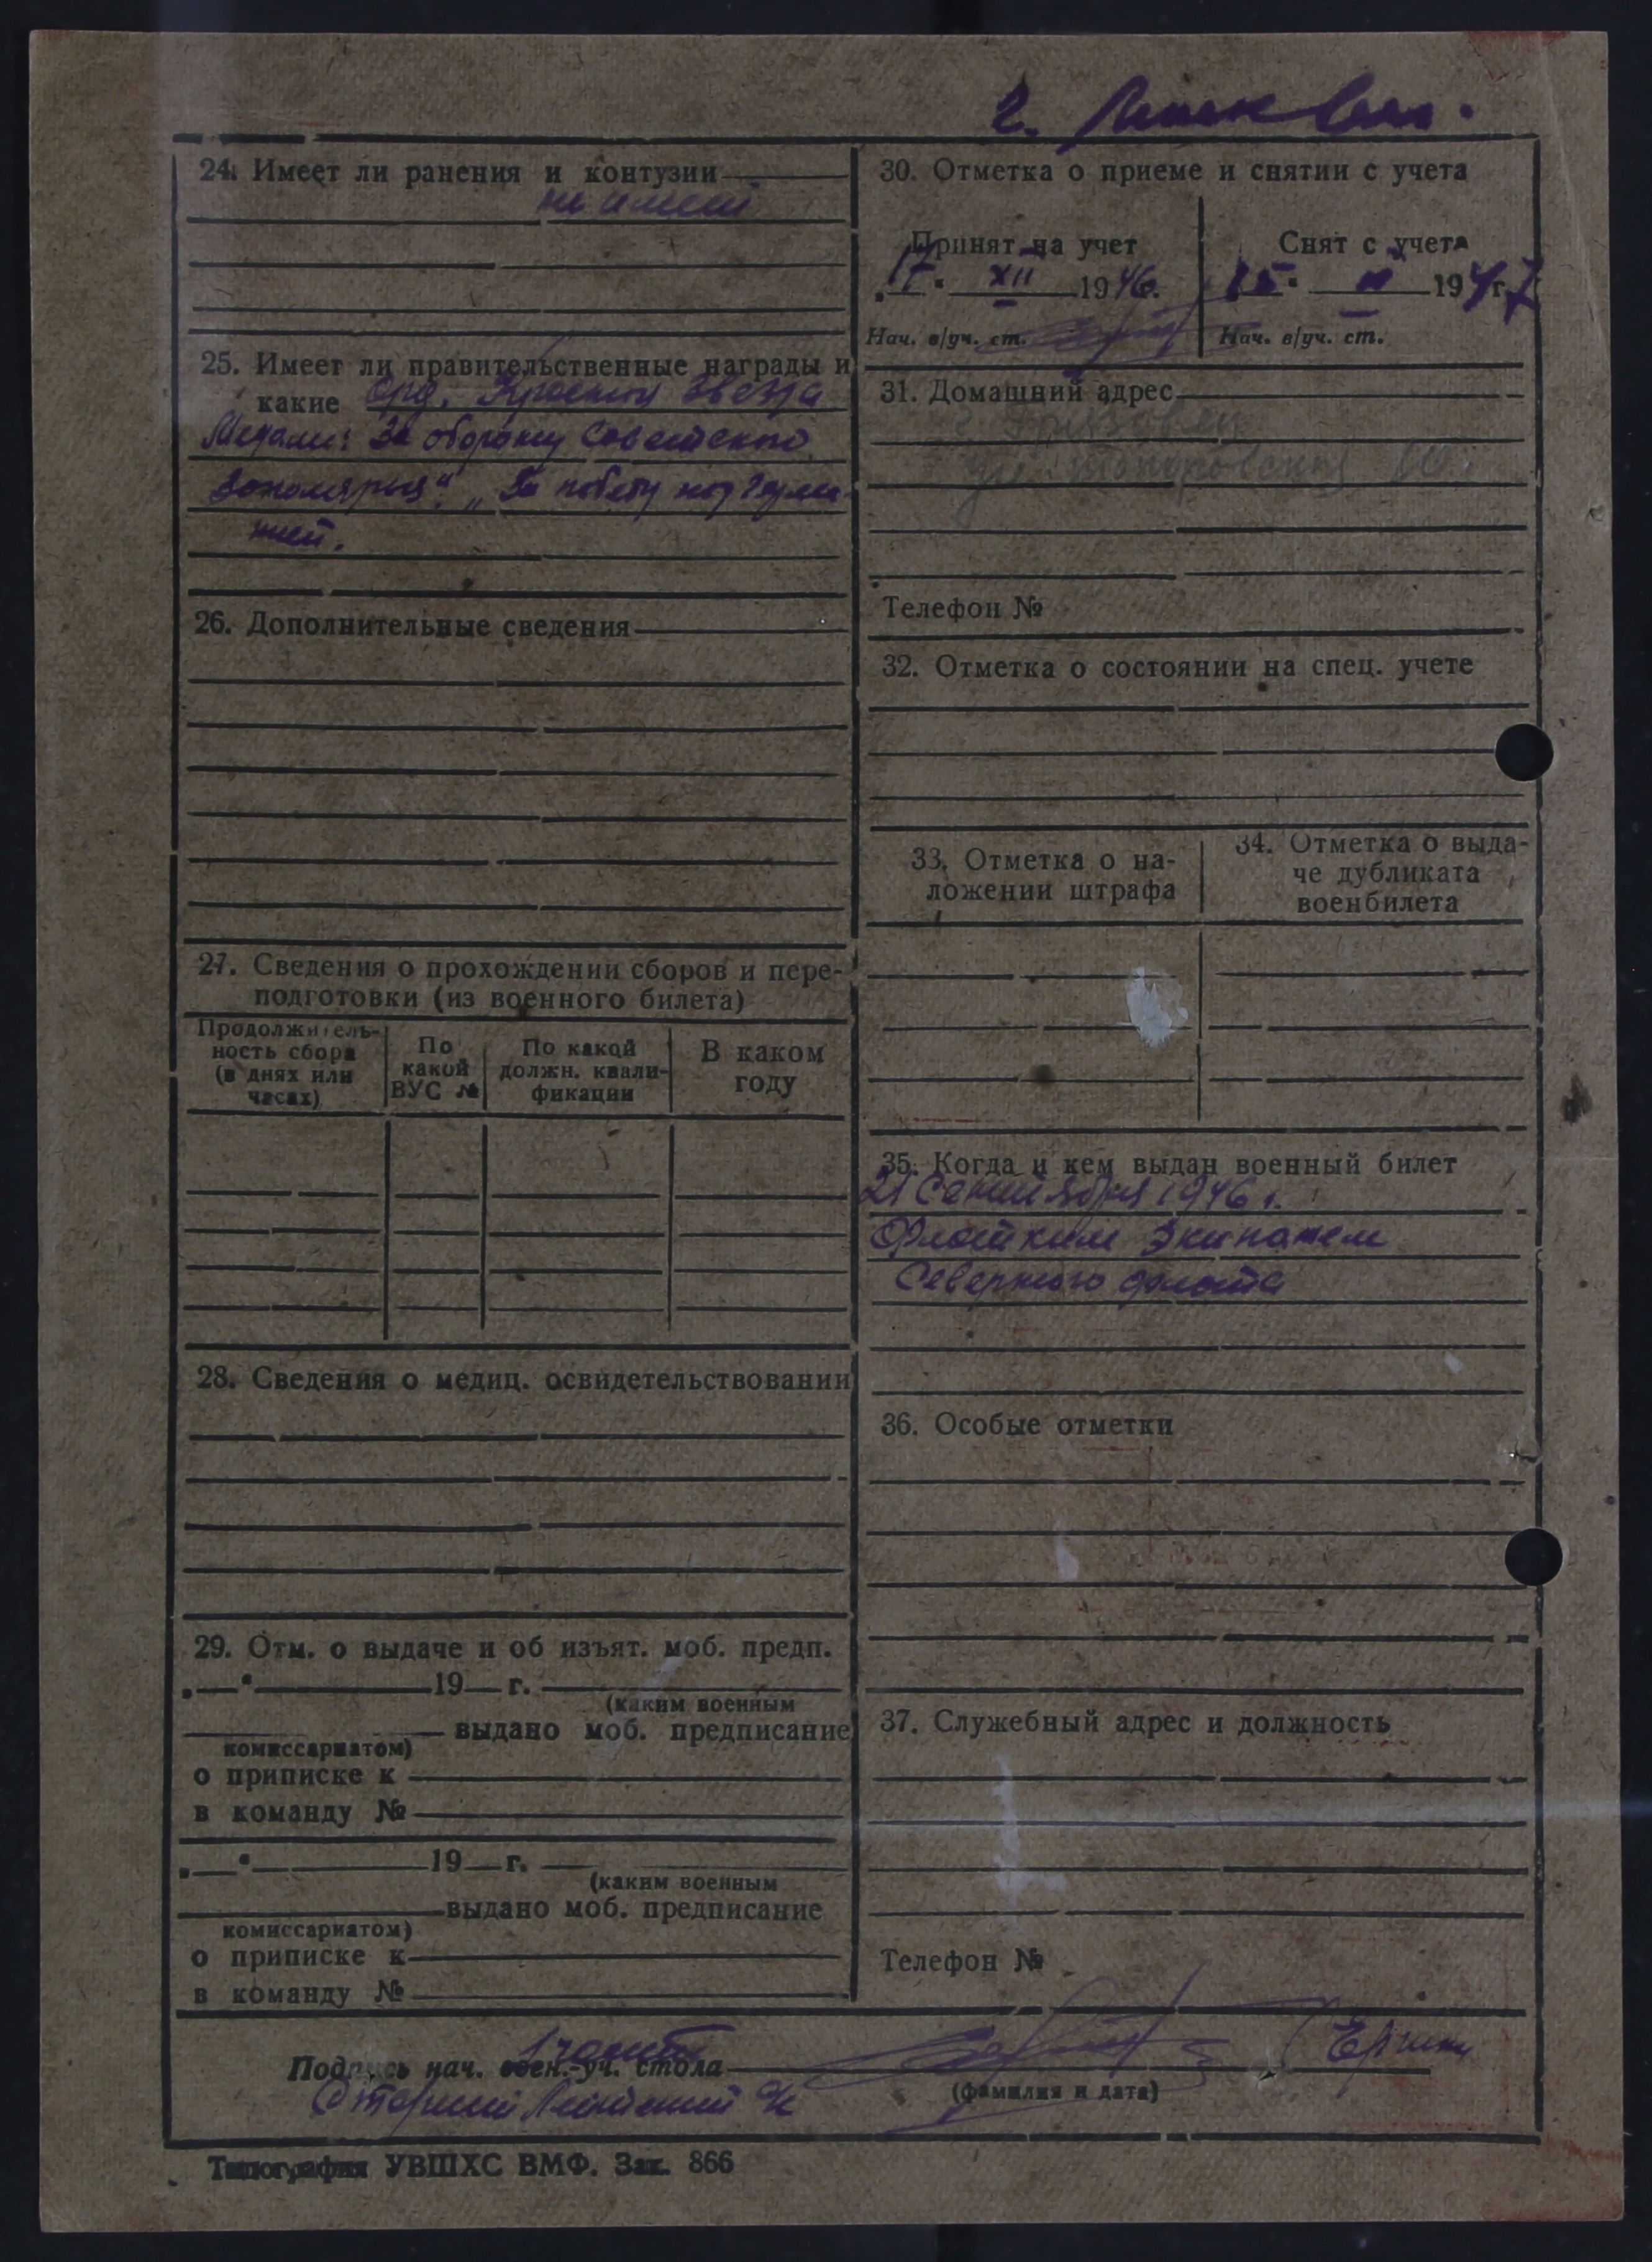 г.
24. Имеет ли ранения и контузии
не имеет
25. Имеет ли правительственные награды и
какие Орд. Красная Звезда
Медали: За оборону Советского
Заполярья", „За победу над Герма-
нией.
26. Дополнительные сведения
27. Сведения о прохождении сборов и пере-
подготовки (из военного билета)
Продолжитель-
ность сбора
(в днях или
часах)
По
какой
ВУС №
По какой
должн. квали-
фикации
В каком
году
28. Сведения о медиц. освидетельствовании
29. Отм. о выдаче и об изъят. моб. предп.
19 г.
(каким военным
выдано моб. предписание
комиссариатом)
о приписке к
в команду №
19 г.
(каким военным
выдано моб. предписание
комиссариатом)
о приписке к
в команду №
30. Отметка о приеме и снятии с учета
Принят на учет
17 XII 1946.
Нач. в/уч. ст.
Снят с учета
1947 г.
Нач. в/уч. ст.
31. Домашний адрес
г. Грязовец
ул.
Телефон №
32. Отметка о состоянии на спец. учете
33. Отметка о на-
ложении штрафа
34. Отметка о выда-
че дубликата
военбилета
35. Когда и кем выдан военный билет
21 Сентября 1946 г.
Флотским Экипажем
Северного флота
36. Особые отметки
37. Служебный адрес и должность
Телефон №
1 части
Подпись нач. воен.-уч. стола
(фамилия и дата)
Старший Лейтенант
Типография УВШХС ВМФ. Зак. 866